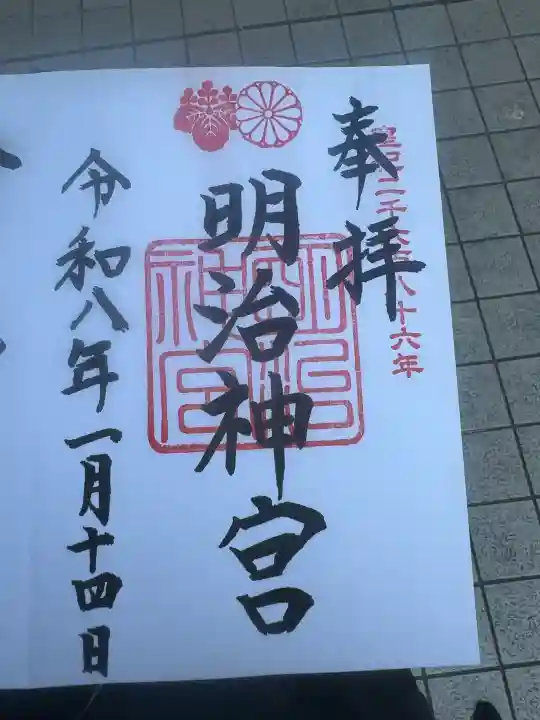 奉拝
皇紀二千六百八十六年
明治神宮
明治神宮
令和八年一月十四日